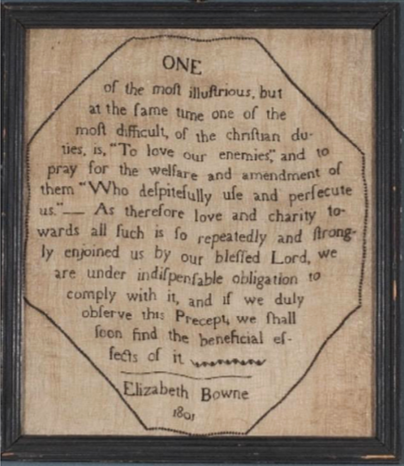 ONE
of the moſt illuſtrious, but
at the ſame time one of the
moſt difficult, of the chriſtian du-
ties, is, "To love our enemies," and to
pray for the welfare and amendment of
them "Who deſpitefully uſe and perſecute
us."— As therefore love and charity to-
wards all ſuch is ſo repeatedly and ſtrong-
ly enjoined us by our bleſſed Lord, we
are under indiſpenſable obligation to
comply with it, and if we duly
obſerve this Precept, we ſhall
ſoon find the beneficial ef-
fects of it
Elizabeth Bowne
1801